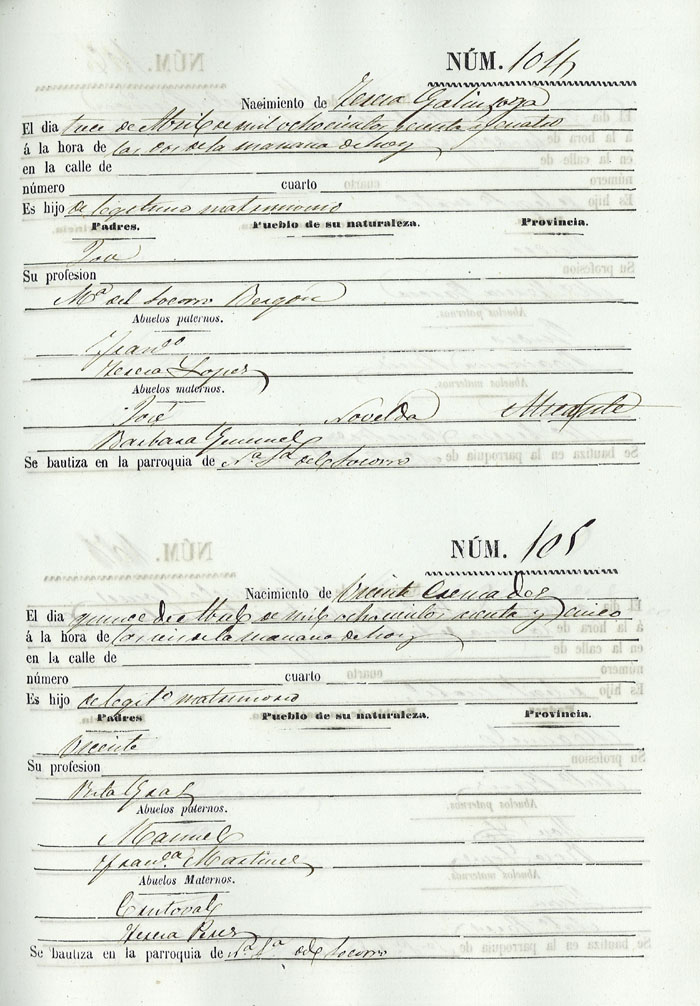 NÚM. 104
Nacimiento de Teresa Galinsoga
El dia trece de Abril de mil ochocientos sesenta y cuatro
á la hora de las dos de la mañana de hoy
en la calle de
número cuarto
Es hijo de legitimo matrimonio
Padres. Pueblo de su naturaleza. Provincia.
José
Su profesion
Mª del Socorro Bergón
Abuelos paternos.
Franco
Teresa Lopez
Abuelos maternos.
José Novelda Alicante
Barbara Gimenez
Se bautiza en la parroquia de Nª Sª del Socorro
NÚM. 105
Nacimiento de Vicente Cremades
El dia quince de Abril de mil ochocientos sesenta y cinco
á la hora de las seis de la mañana de hoy
en la calle de
número cuarto
Es hijo de legitº matrimonio
Padres Pueblo de su naturaleza. Provincia.
Vicente
Su profesion
Rita Gras
Abuelos paternos.
Manuel
Franca Martinez
Abuelos Maternos.
Cristoval
Teresa Peres
Se bautiza en la parroquia de Nª Sª del Socorro